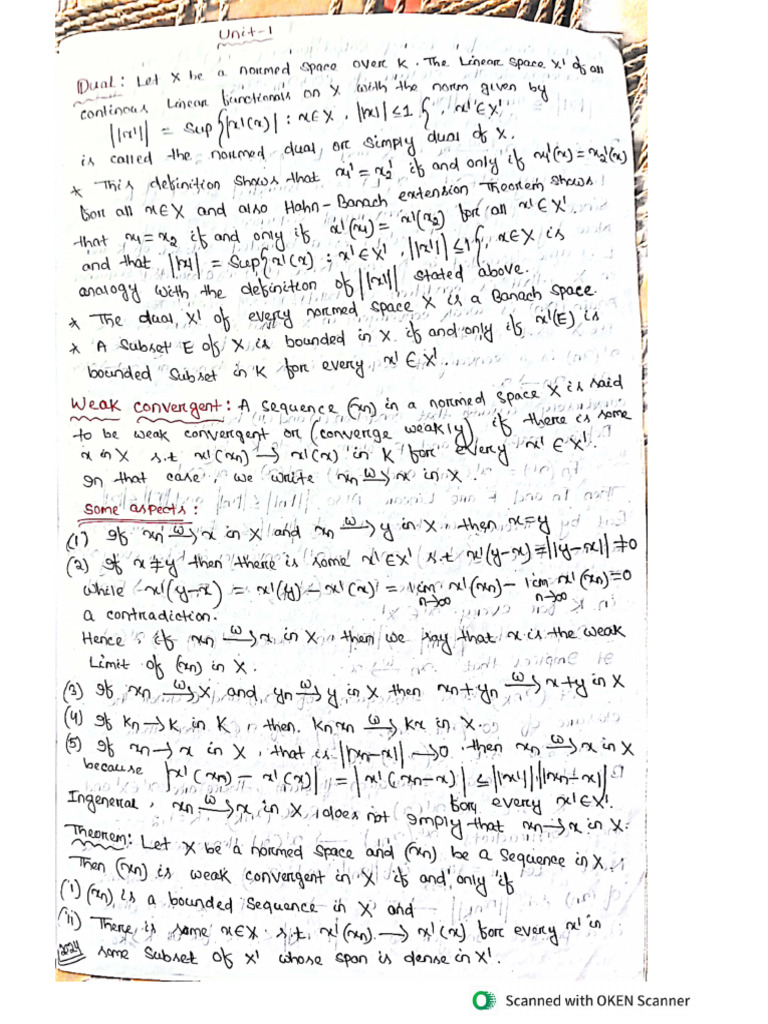 Unit-1
Dual: Let X be a normed space over K. The Linear space X' of all
continous Linear functionals on X with the norm given by
||x'|| = Sup{|x'(x)| : x∈X, ||x|| ≤ 1}, x'∈X',
is called the normed dual, or simply dual of X.
* This definition shows that x₁' = x₂' if and only if x₁'(x) = x₂'(x)
for all x∈X and also Hahn-Banach extension Theorem shows
that x₁ = x₂ if and only if x'(x₁) = x'(x₂) for all x'∈X'
and that ||x|| = Sup{x'(x) : x'∈X', ||x'|| ≤ 1}, x∈X is
analogy with the definition of ||x'|| stated above.
* The dual, X' of every normed space X is a Banach space.
* A Subset E of X is bounded in X if and only if x'(E) is
bounded Subset in K for every x'∈X'.
Weak Convergent: A sequence (xn) in a normed space X is said
to be weak convergent or (converge weakly) if there is some
x in X s.t x'(xn) → x'(x) in K for every x'∈X'.
In that case, we write xn –w→ x in X.
Some aspects:
(1) If xn –w→ x in X and xn –w→ y in X, then x=y
(2) If x≠y then there is some x'∈X' s.t x'(y-x) = ||y-x|| ≠ 0
while x'(y-x) = x'(y) - x'(x) = lim n→∞ x'(xn) - lim n→∞ x'(xn) = 0
a contradiction.
Hence, if xn –w→ x in X, then we say that x is the weak
Limit of (xn) in X.
(3) If xn –w→ X and yn –w→ y in X then xn+yn –w→ x+y in X
(4) If kn → k in K, then knxn –w→ kx in X.
(5) If xn → x in X, that is ||xn-x|| → 0, then xn –w→ x in X
because |x'(xn) - x'(x)| = |x'(xn-x)| ≤ ||x'|| ||xn-x||
for every x'∈X'.
Ingeneral, xn –w→ x in X, does not imply that xn → x in X.
Theorem: Let X be a normed space and (xn) be a sequence in X.
Then (xn) is weak convergent in X if and only if
(i) (xn) is a bounded sequence in X and
(ii) There is some x∈X s.t. x'(xn) → x'(x) for every x' in
2024 some Subset of X' whose span is dense in X'.
Scanned with OKEN Scanner